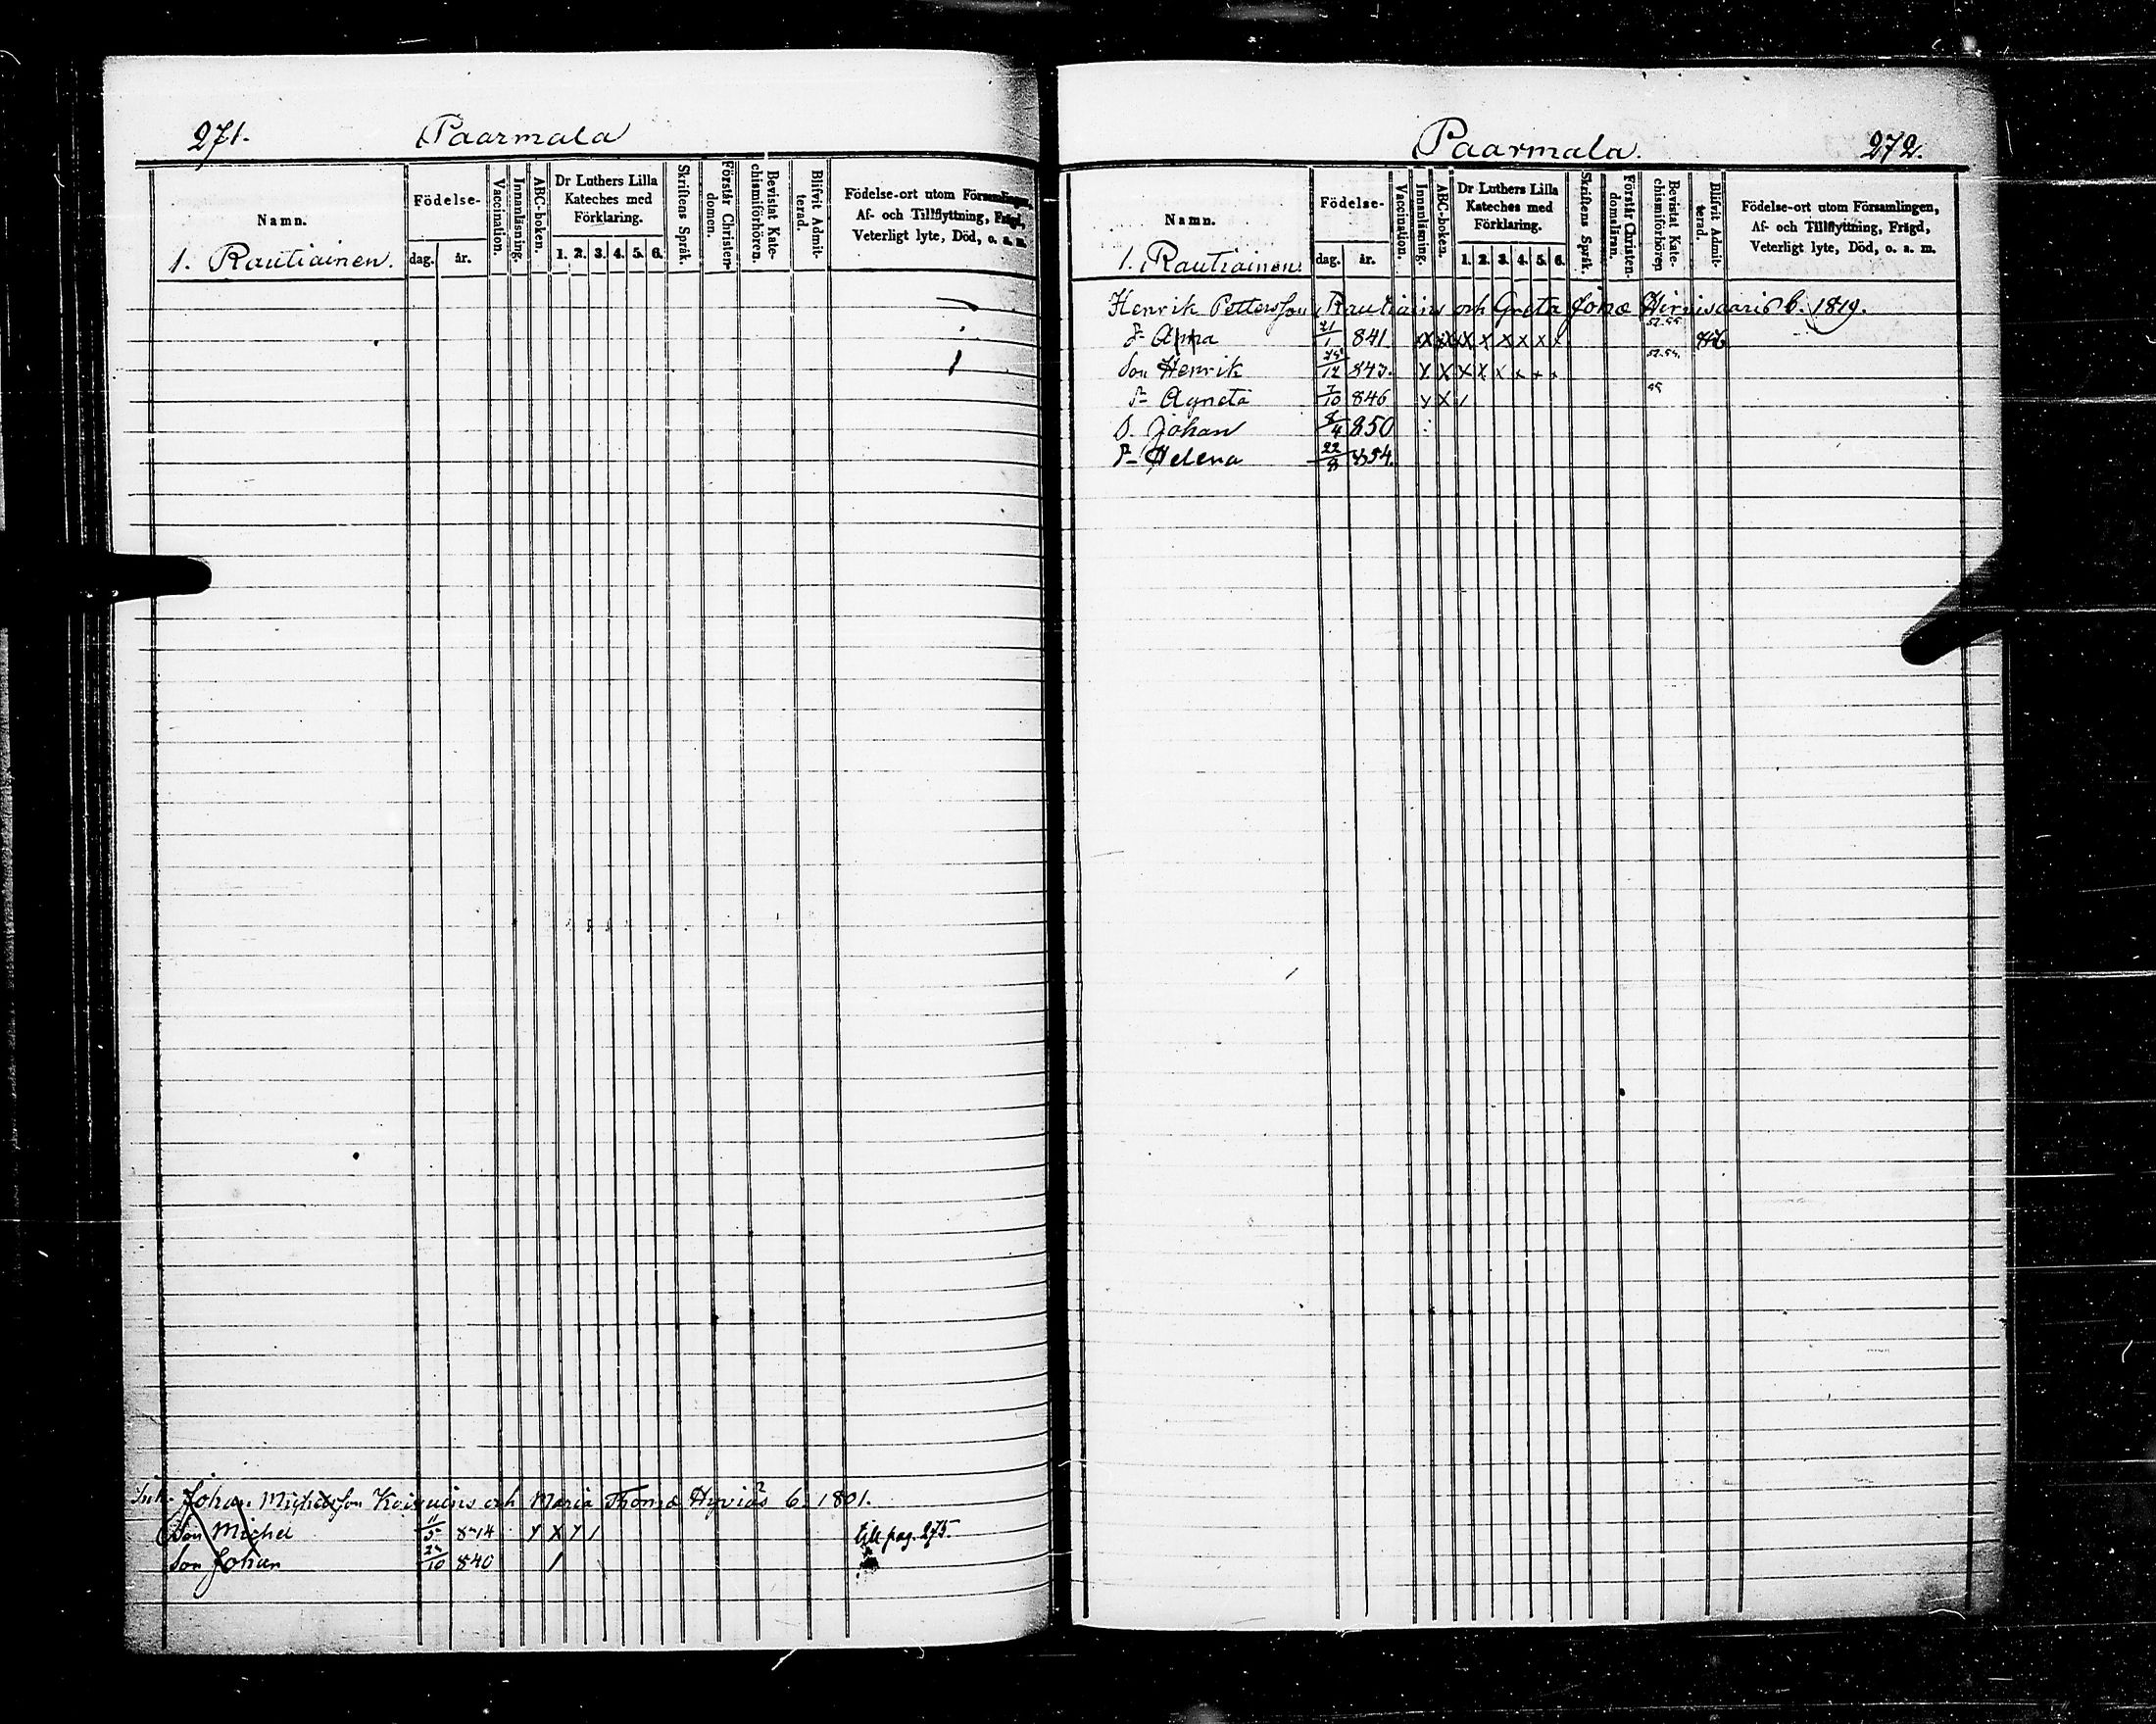 271. Paarmala
Namn.
Födelse-
dag. år.
Vaccination.
Innanläsning.
ABC-boken.
Dr Luthers Lilla Kateches med Förklaring.
1. 2. 3. 4. 5. 6.
Skriftens Språk.
Förstår Christen-domen.
Bevistat Kate-chismiförhören.
Blifvit Admit-terad.
Födelse-ort utom Församlingen,
Af- och Tillflyttning, Frägd,
Veterligt lyte, Död, o. a. m.
1. Rautiainen.
Johan Michelsson och Maria Thomæ b. 1801.
Son Michel 11/5 814 till pag. 275.
Son Johan 10 840
Paarmala. 272.
Namn.
Födelse-
dag. år.
Vaccination.
Innanläsning.
ABC-boken.
Dr Luthers Lilla Kateches med Förklaring.
1. 2. 3. 4. 5. 6.
Skriftens Språk.
Förstår Christen-domsläran.
Bevistat Kate-chismiförhören
Blifvit Admit-terad.
Födelse-ort utom Församlingen,
Af- och Tillflyttning, Frägd,
Veterligt lyte, Död, o. a. m.
1. Rautiainen.
Henrik Pettersson Rautiain och Greta Jonæ Hirvisaari b. 1819.
Anna 21/1 841 x x x x x x x
Son Henrik 25/12 843. x x x x x x x x
Agneta 7/10 846 x x /
S. Johan 8/4 850
Helena 22/8 854.